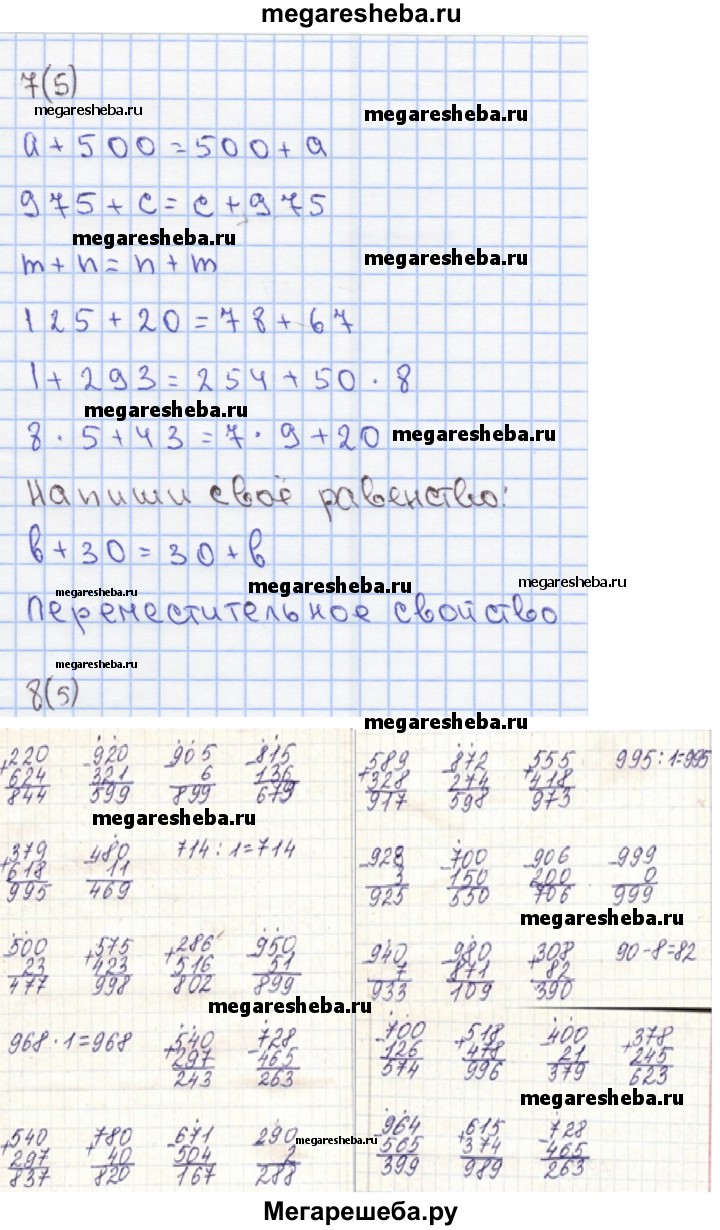 megaresheba.ru
7(5)
megaresheba.ru
megaresheba.ru
a + 500 = 500 + a
975 + c = c + 975
megaresheba.ru
megaresheba.ru
m + n = n + m
125 + 20 = 78 + 67
1 + 293 = 254 + 50 · 8
megaresheba.ru
8 · 5 + 43 = 7 · 9 + 20
megaresheba.ru
Напиши своё равенство:
в + 30 = 30 + в
megaresheba.ru
megaresheba.ru
megaresheba.ru
Переместительное свойство
megaresheba.ru
8(5)
megaresheba.ru
220 920 905 815
+624 -321 - 6 -136
844 599 899 679
megaresheba.ru
379 480 714 : 1 = 714
+618 - 11
995 469
500 575 286 950
- 23 +423 +516 - 51
477 998 802 899
megaresheba.ru
968 · 1 = 968 540 728
+297 -465
243 263
540 780 671 290
+297 + 40 -504 - 2
837 820 167 288
megaresheba.ru
589 872 555 995 : 1 = 995
+328 -274 +418
917 598 973
928 700 906 999
- 3 -150 -200 - 0
925 550 706 999
megaresheba.ru
940 980 308 90 - 8 = 82
- 7 -871 + 82
933 109 390
700 518 400 378
-126 +478 - 21 +245
574 996 379 623
megaresheba.ru
964 615 728
-565 +374 -465
399 989 263
Мегарешеба.ру